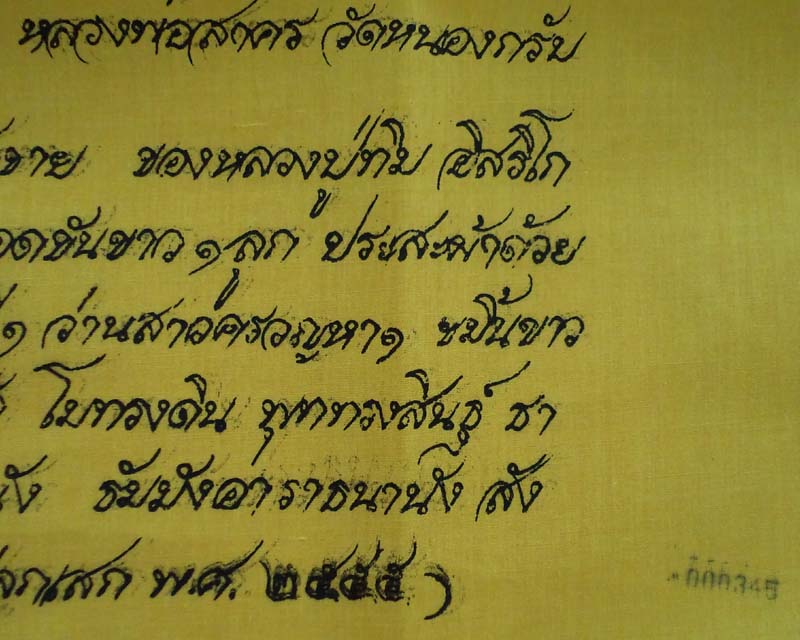 หลวงพ่อสาคร วัดหนองกรับ
ชาย ของหลวงปู่ทิม อิสริโก
อดขันขาว ๑ ลูก ประสะผ้าด้วย
๑ ว่านสาวครวญหา ๑ ขมิ้นขาว
โมทรงดิน พุททรงสินธุ์ ธา
ธัมมังอาราธนานัง สัง
กเสก พ.ศ. ๒๕๕๕ )
000345